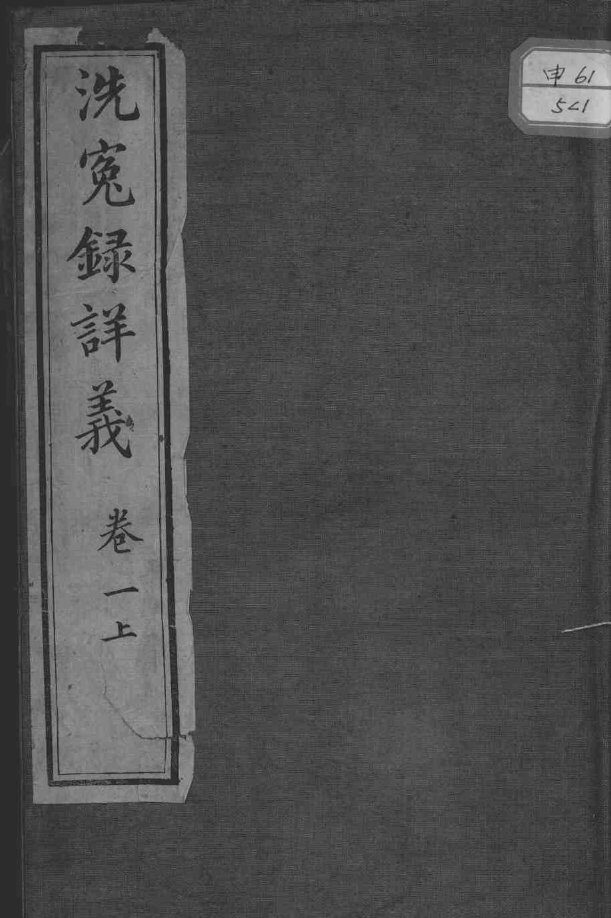 洗冤錄詳義 卷一上
申61
541